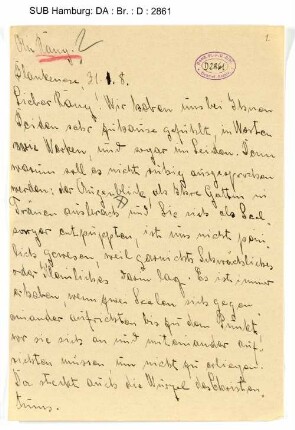 SUB Hamburg: DA : Br. : D : 2861
An Rang. 2
1
D2861
Blankenese, 31. 1. 8.
Lieber Rang! Wir haben uns bei Ihnen
beiden sehr zuhause gefühlt, in Worten
wie Werken, und sogar im Leiden. Denn
warum soll es nicht ruhig ausgesprochen
werden: der Augenblick als Ihre Gattin in
Tränen ausbrach und Sie sich als Seel
sorger entpuppten, ist uns nicht pein
lich gewesen weil garnichts Schwächliches
oder Kleinliches darin lag. Es ist immer
erhaben wenn zwei Seelen sich gegen
einander aufrichten bis zu dem Punkt
wo sie sich an und miteinander auf
richten müssen um nicht zu erliegen.
Da steckt auch die Wurzel des Christen
tums.